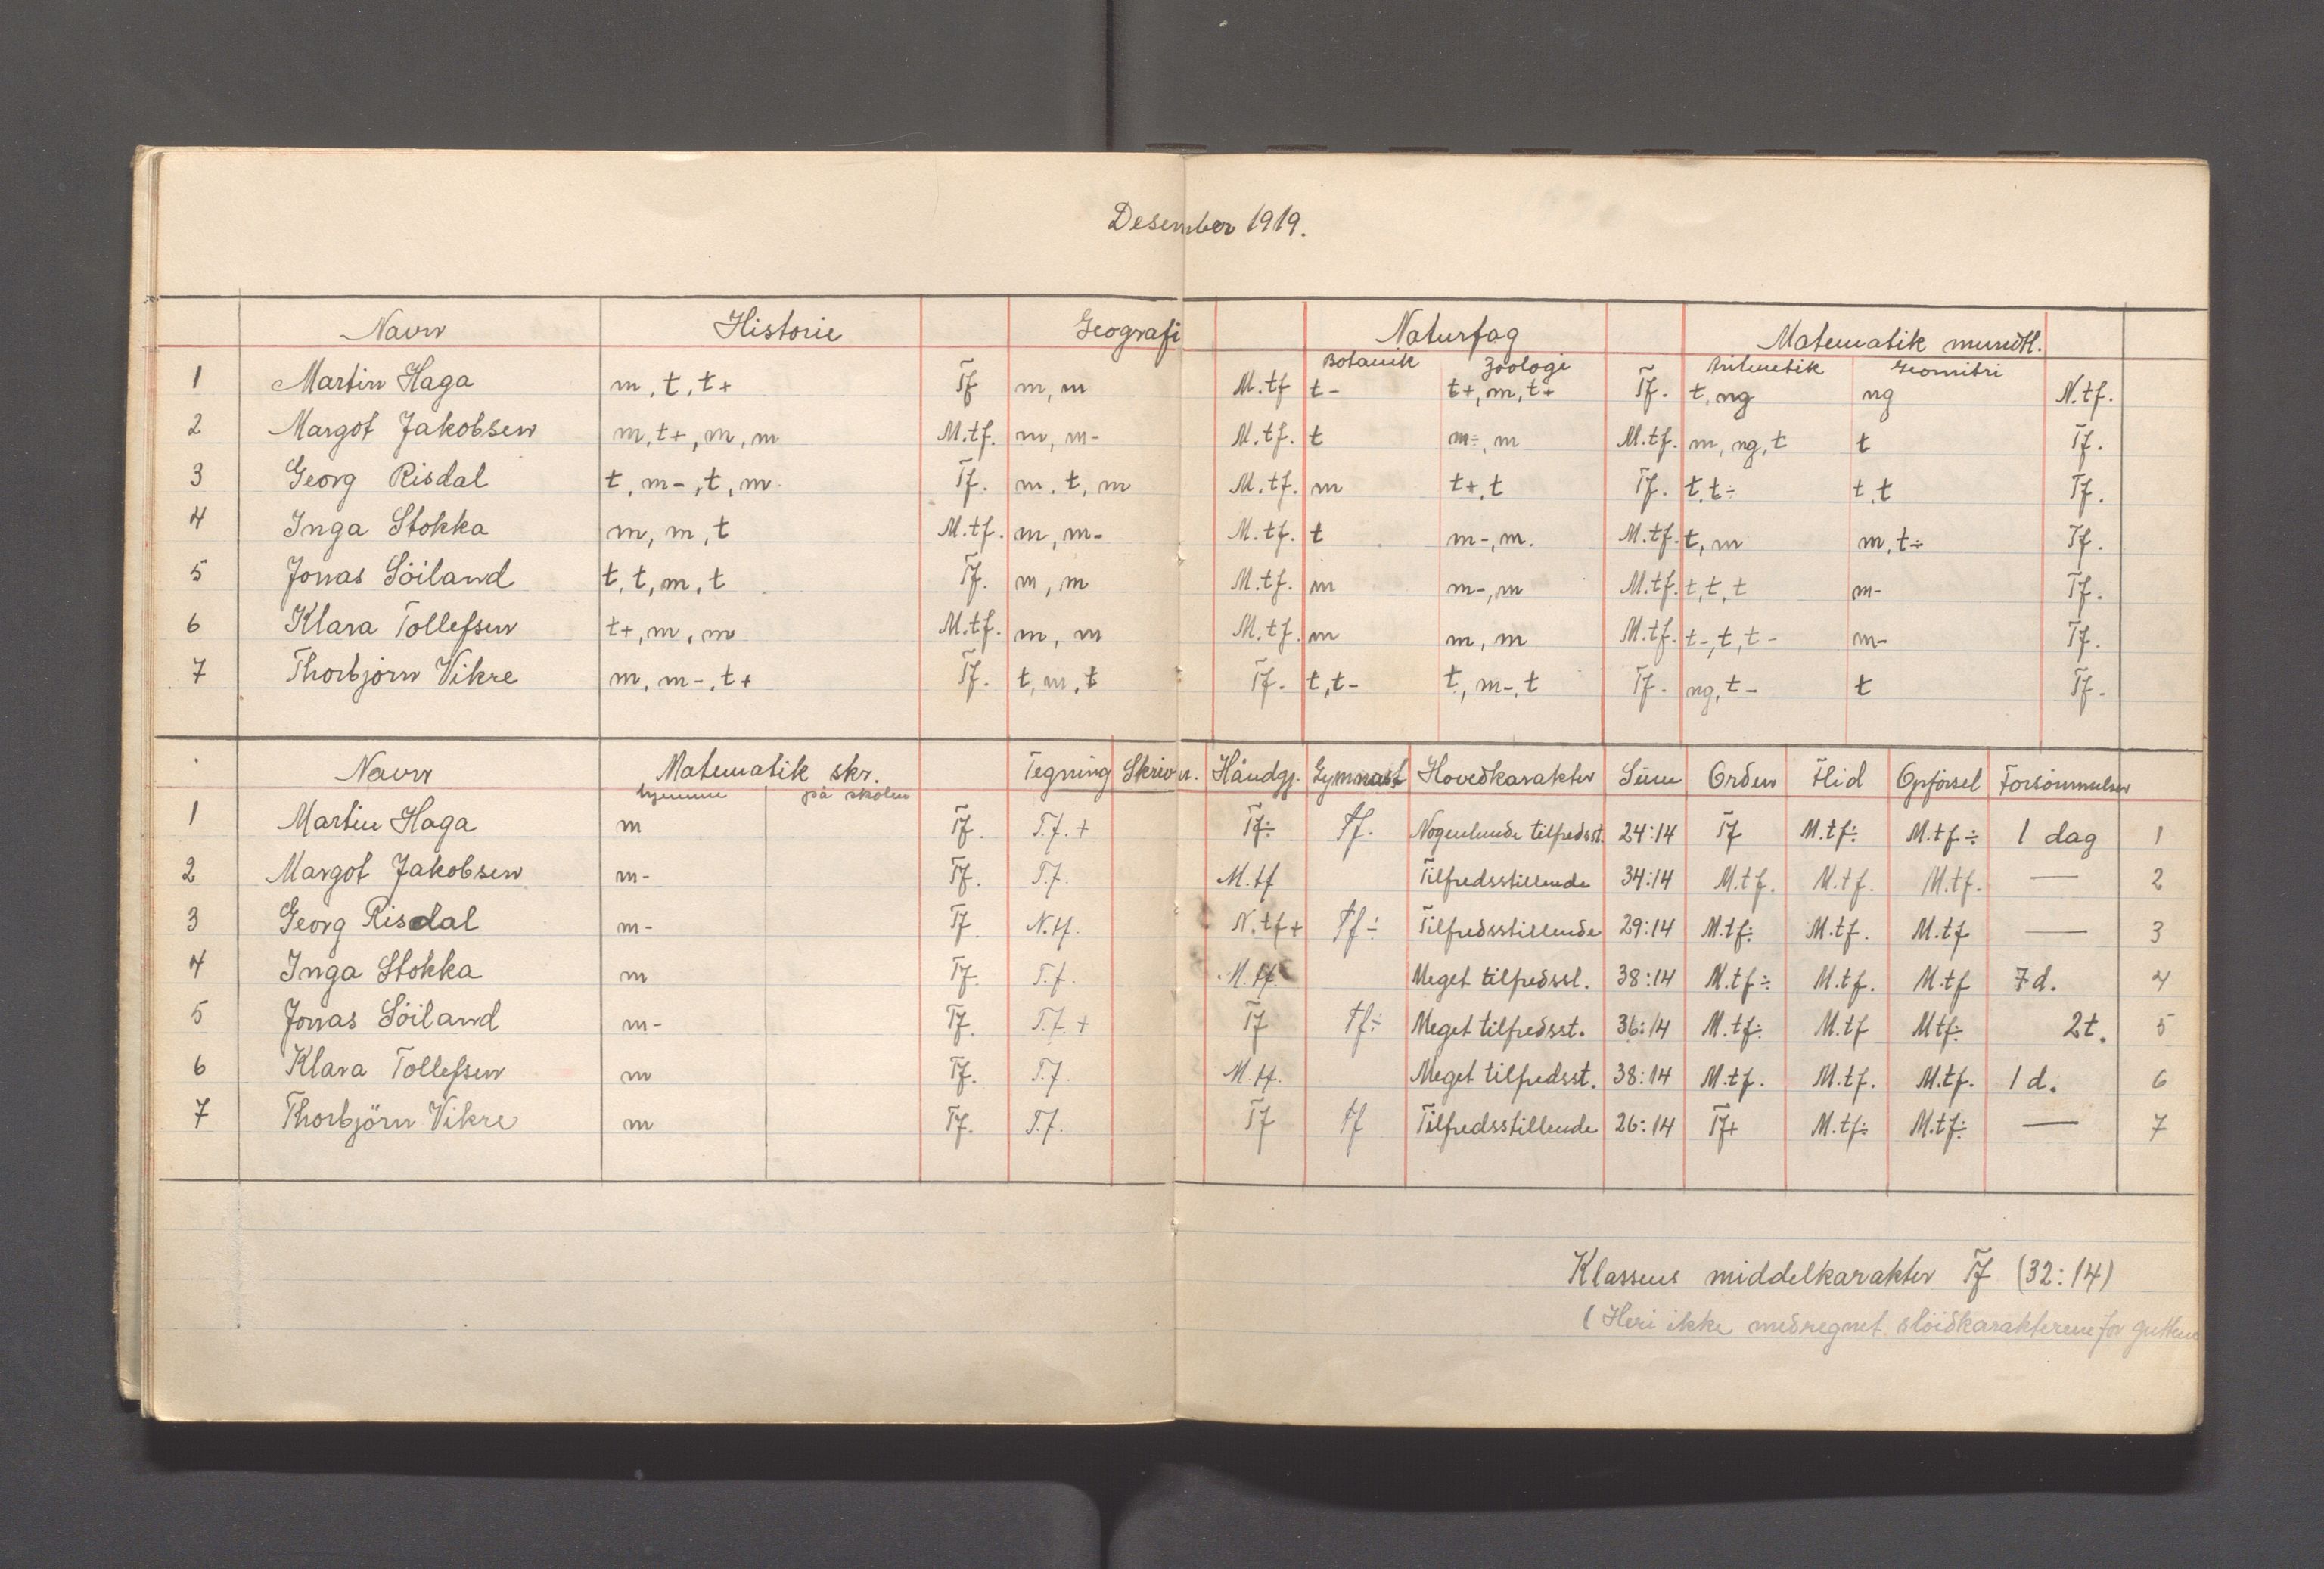 Desember 1919.
Navn Historie Geografi Naturfag Matematik mundtl.
Botanik Zoologi Aritmetik Geometri
1 Martin Haga m, t, t+ Tf m, m M.tf t- t+, m, t+ Tf. t, ng ng N.tf.
2 Margot Jakobsen m, t+, m, m M.tf. m, m- M.tf. t m÷, m M.tf. m, ng, t t Tf.
3 Georg Risdal t, m-, t, m Tf. m, t, m M.tf. m t+, t Tf. t, t÷ t, t Tf.
4 Inga Stokka m, m, t M.tf. m, m- M.tf. t m-, m. M.tf. t, m m, t÷ Tf.
5 Jonas Söiland t, t, m, t Tf. m, m M.tf. m m-, m M.tf. t, t, t m- Tf.
6 Klara Tollefsen t+, m, m M.tf. m, m M.tf. m m, m M.tf. t-, t, t- m- Tf.
7 Thorbjörn Vikre m, m-, t+ Tf. t, m, t Tf. t, t- t, m-, t Tf. ng, t- t Tf.
Navn Matematik skr. Tegning Skrivn. Håndgj. Gymnast Hovedkarakter Sum Orden Flid Opförsel Forsömmelser
hjemme på skolen
1 Martin Haga m Tf. T.f. + Tf÷ tf. Nogenlunde tilfredsst. 24:14 Tf M.tf÷ M.tf÷ 1 dag 1
2 Margot Jakobsen m- Tf. T.f. M.tf Tilfredsstillende 34:14 M.tf. M.tf. M.tf. — 2
3 Georg Risdal m- Tf. N.tf. N.tf+ tf÷ Tilfredsstillende 29:14 M.tf÷ M.tf. M.tf — 3
4 Inga Stokka m Tf. T.f. M.tf. Meget tilfredsst. 38:14 M.tf÷ M.tf. M.tf 7 d. 4
5 Jonas Söiland m- Tf. T.f. + Tf tf÷ Meget tilfredsst. 36:14 M.tf÷ M.tf M.tf÷ 2t. 5
6 Klara Tollefsen m Tf. T.f. M.tf. Meget tilfredsst. 38:14 M.tf. M.tf. M.tf. 1 d. 6
7 Thorbjörn Vikre m Tf. T.f. Tf tf Tilfredsstillende 26:14 Tf+ M.tf÷ M.tf÷ — 7
Klassens middelkarakter Tf (32:14)
(Heri ikke medregnet slöidkarakterene for guttene